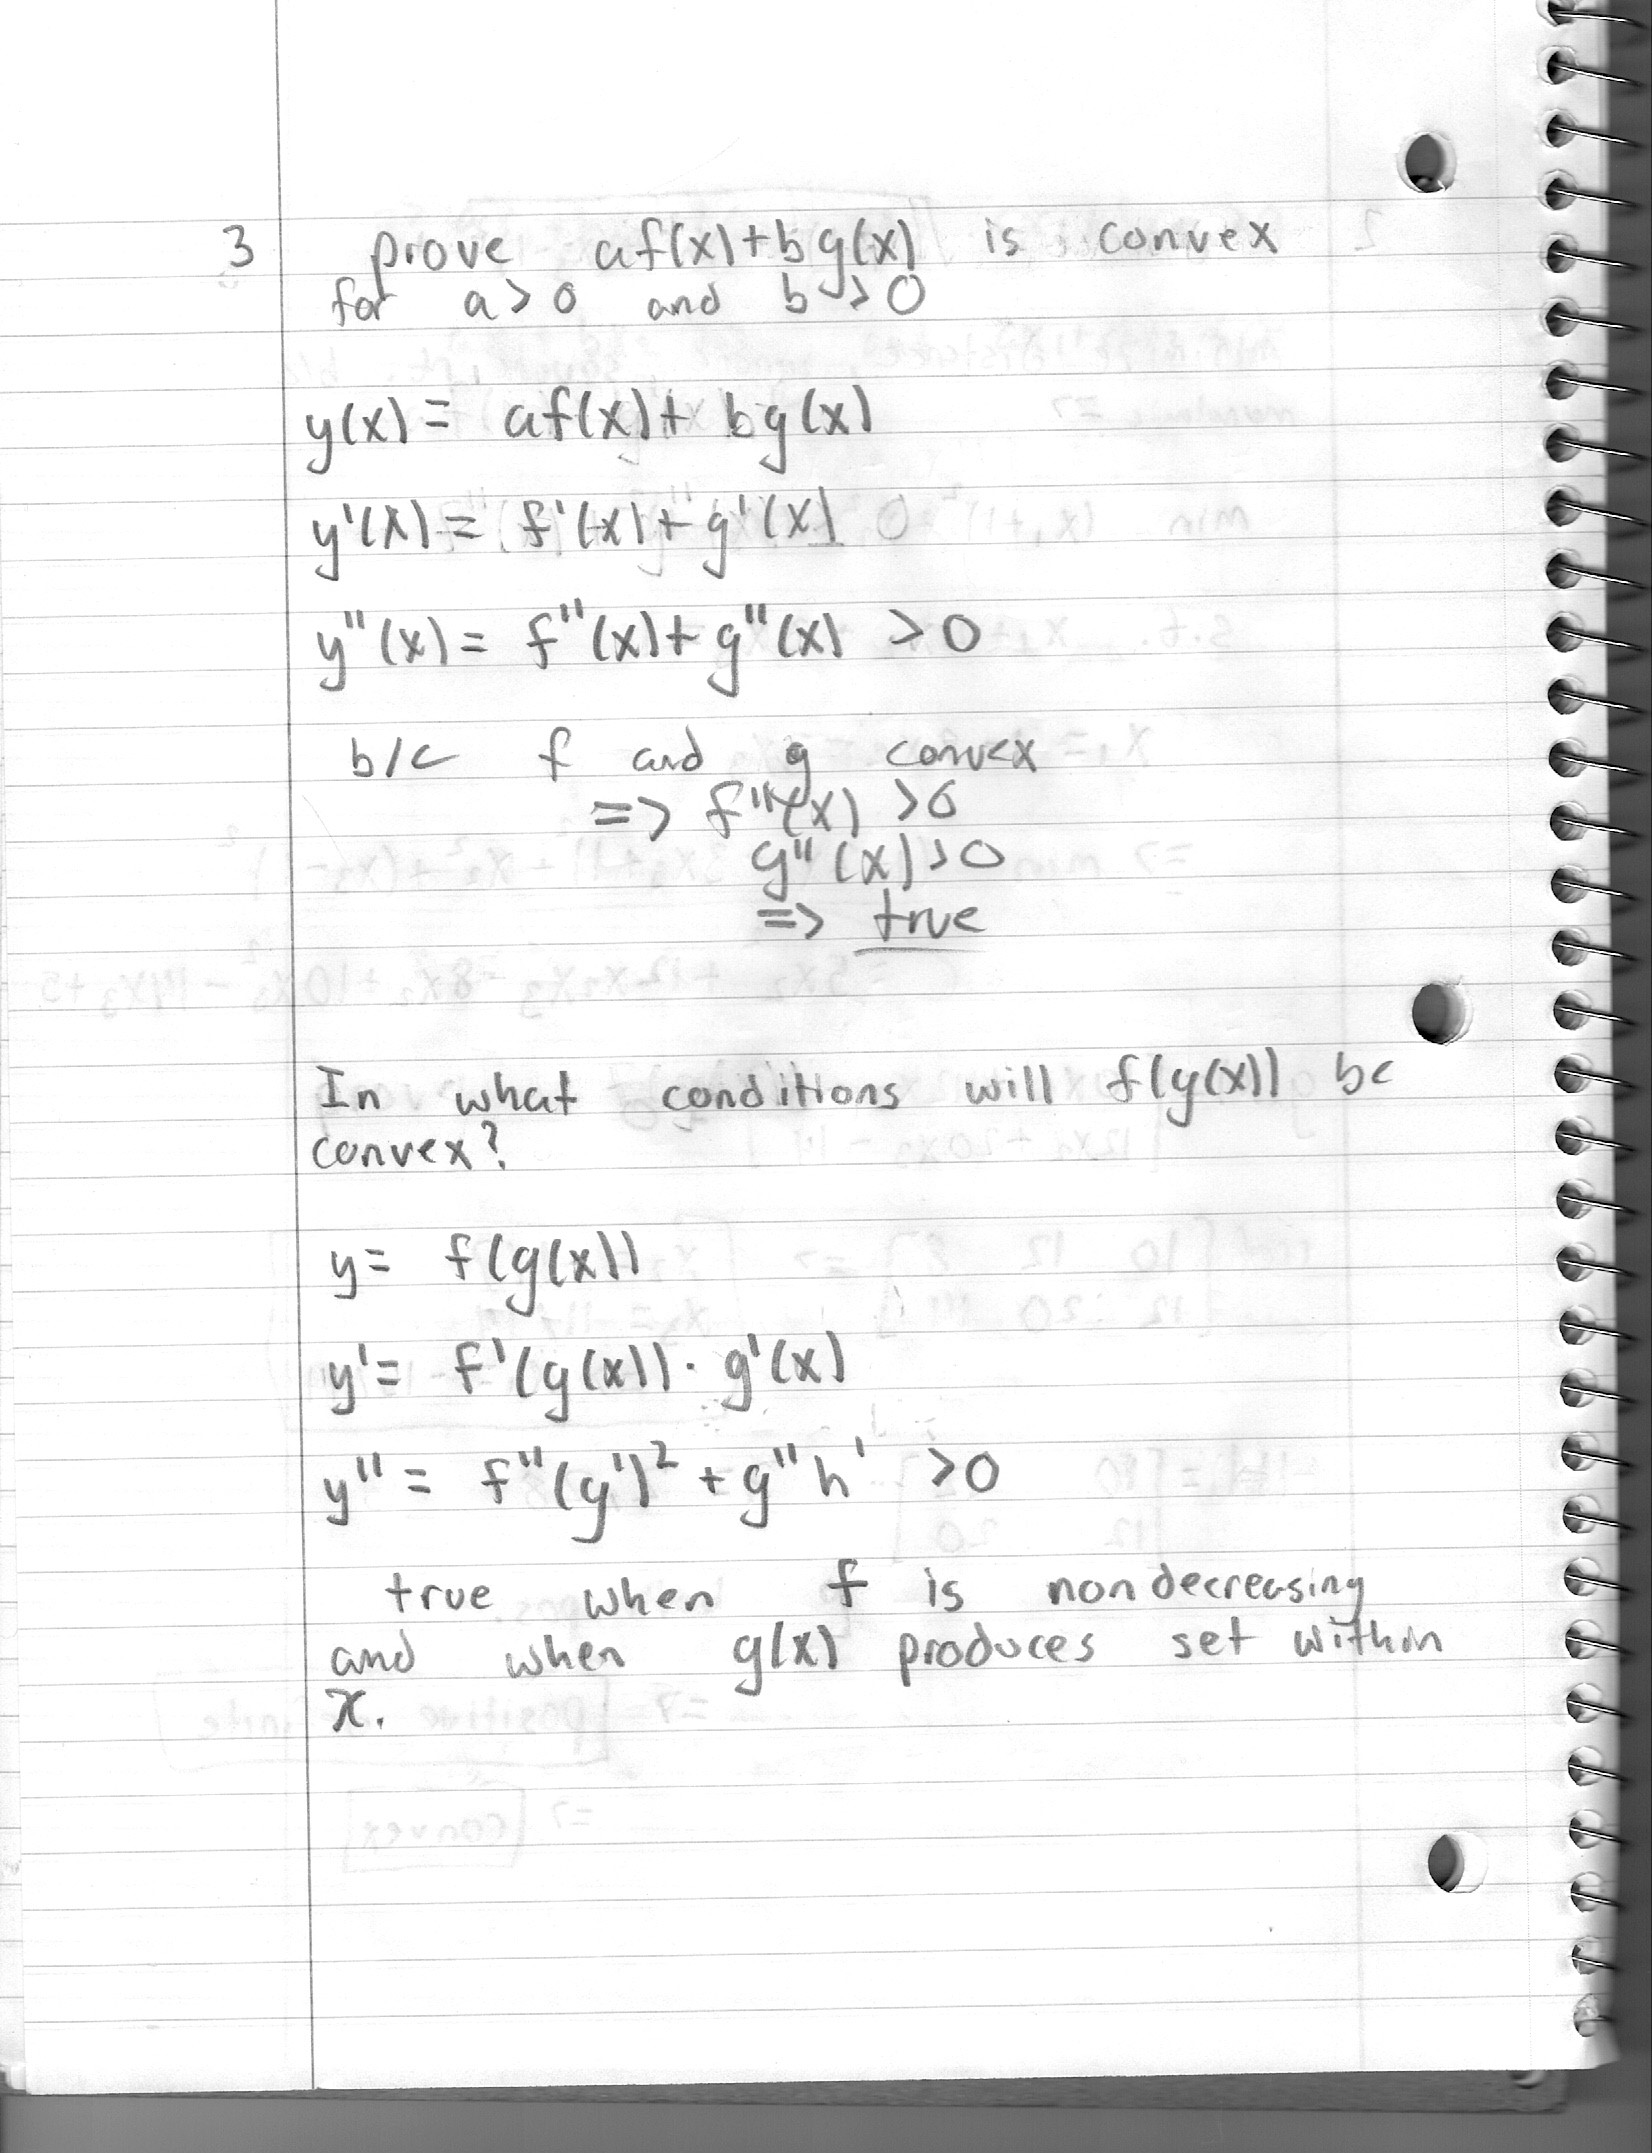 3 prove af(x)+bg(x) is convex
for a>0 and b>0
y(x)= af(x)+ bg(x)
y'(x)= f'(x)+g'(x)
y''(x)= f''(x)+g''(x) >0
b/c f and g convex
=> f''(x) >0
g''(x)>0
=> true
In what conditions will f(g(x)) be
convex?
y= f(g(x))
y'= f'(g(x))·g'(x)
y''= f''(g')² +g''h' >0
true when f is nondecreasing
and when g(x) produces set within
X.